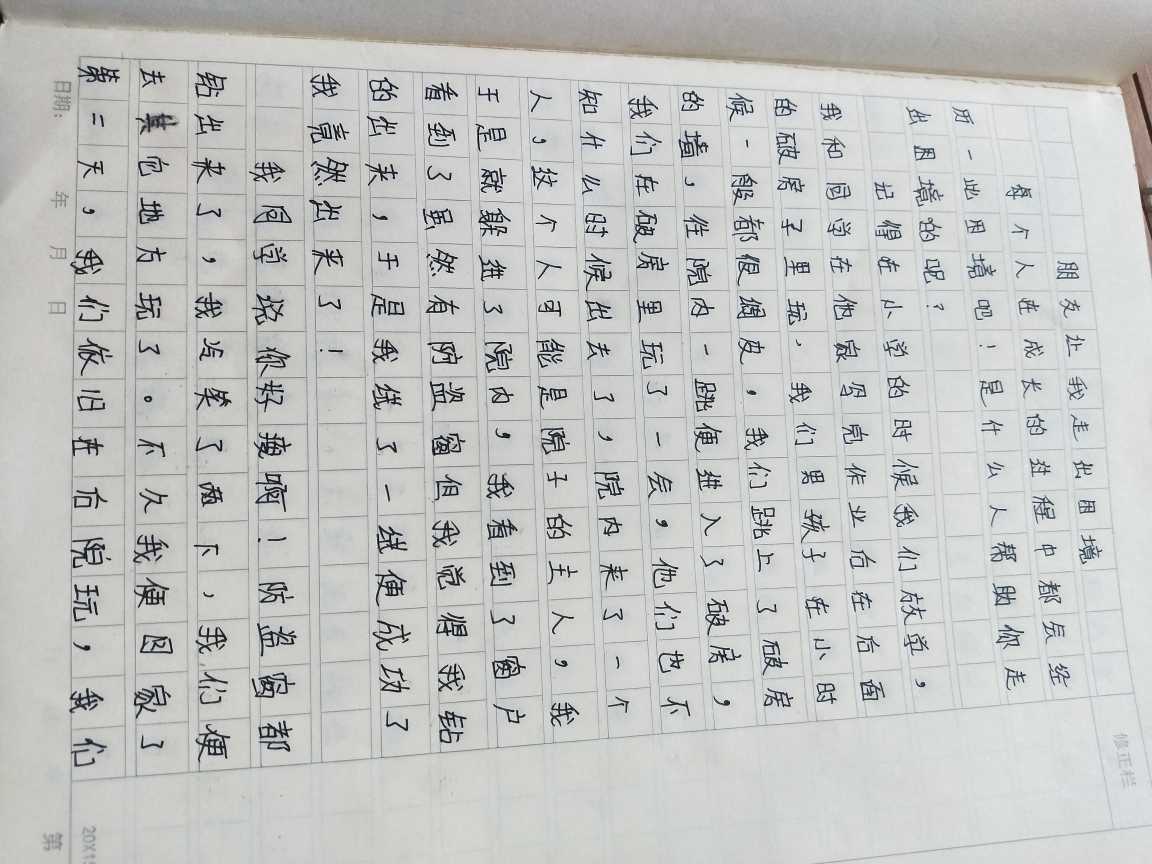 朋友让我走出困境
每个人在成长的进程中都会经
历一些困境吧！是什么人帮助你走
出困境的呢？
记得在小学的时候我们放学，
我和同学在他家写完作业后在后面
的破房子里玩，我们男孩子在小时
候一般都很调皮，我们跳上了破房
的墙，往院内一跳便进入了破房，
我们在破房里玩了一会，他们也不
知什么时候出去了，院内来了一个
人，这个人可能是院子的主人，我
于是就躲进了院内，我看到了窗户
看到了虽然有防盗窗但我觉得我钻
的出来，于是我继了一继便成功了
我竟然出来了！
我同学说你好瘦啊！防盗窗都
钻出来了，我还笑了两下，我们便
去其它地方玩了。不久我便回家了
第二天，我们依旧在右院玩，我们
修正栏
日期： 年 月 日
第